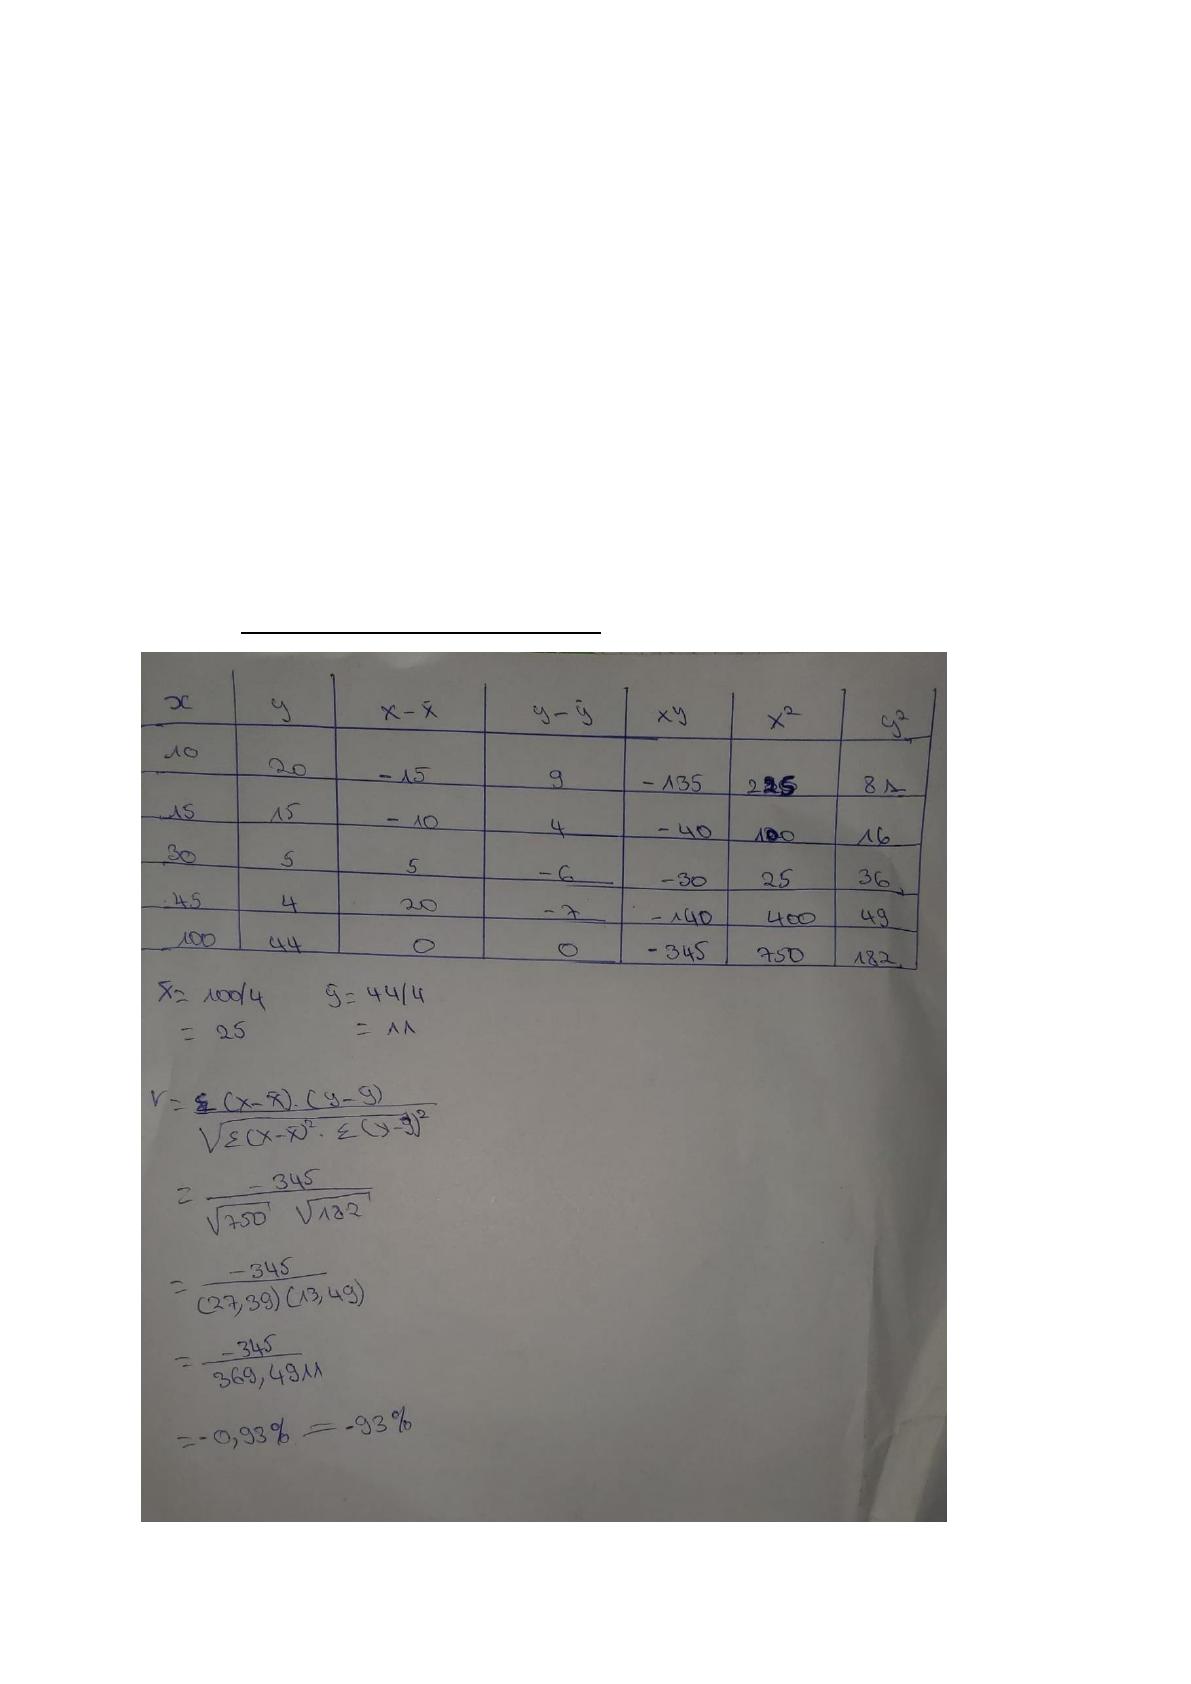 x y x - x̄ y - ȳ xy x² y²
10 20 -15 9 -135 225 81
15 15 -10 4 -40 100 16
30 5 5 -6 -30 25 36
45 4 20 -7 -140 400 49
100 44 0 0 -345 750 182
x̄ = 100/4 ȳ = 44/4
= 25 = 11
r = Σ (x-x̄).(y-ȳ)
√Σ(x-x̄)². Σ(y-ȳ)²
= -345
√750 √182
= -345
(27,39)(13,49)
= -345
369,4911
= -0,93% = -93%